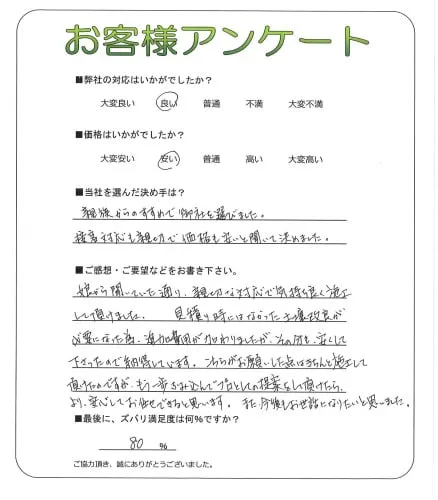 お客様アンケート
■弊社の対応はいかがでしたか?
大変良い 良い 普通 不満 大変不満
■価格はいかがでしたか?
大変安い 安い 普通 高い 大変高い
■当社を選んだ決め手は?
親族からのすすめで御社を選びました。
接客対応も親切で価格も安いと聞いて決めました。
■ご感想・ご要望などをお書き下さい。
娘から聞いていた通り、親切な対応で気持ち良く施工
して頂けました。 見積り時にはなかった土壌改良が
必要になった為、追加費用が加わりましたが、その分も安くして
下さったので納得しています。こちらがお願いした点はきちんと施工して
頂けたのですが、もう一歩ふみ込んでプロとしての提案をして頂けたら、
より、安心してお任せできると思います。また今後もお世話になりたいと思いました。
■最後に、ズバリ満足度は何%ですか?
80 %
ご協力頂き、誠にありがとうございました。